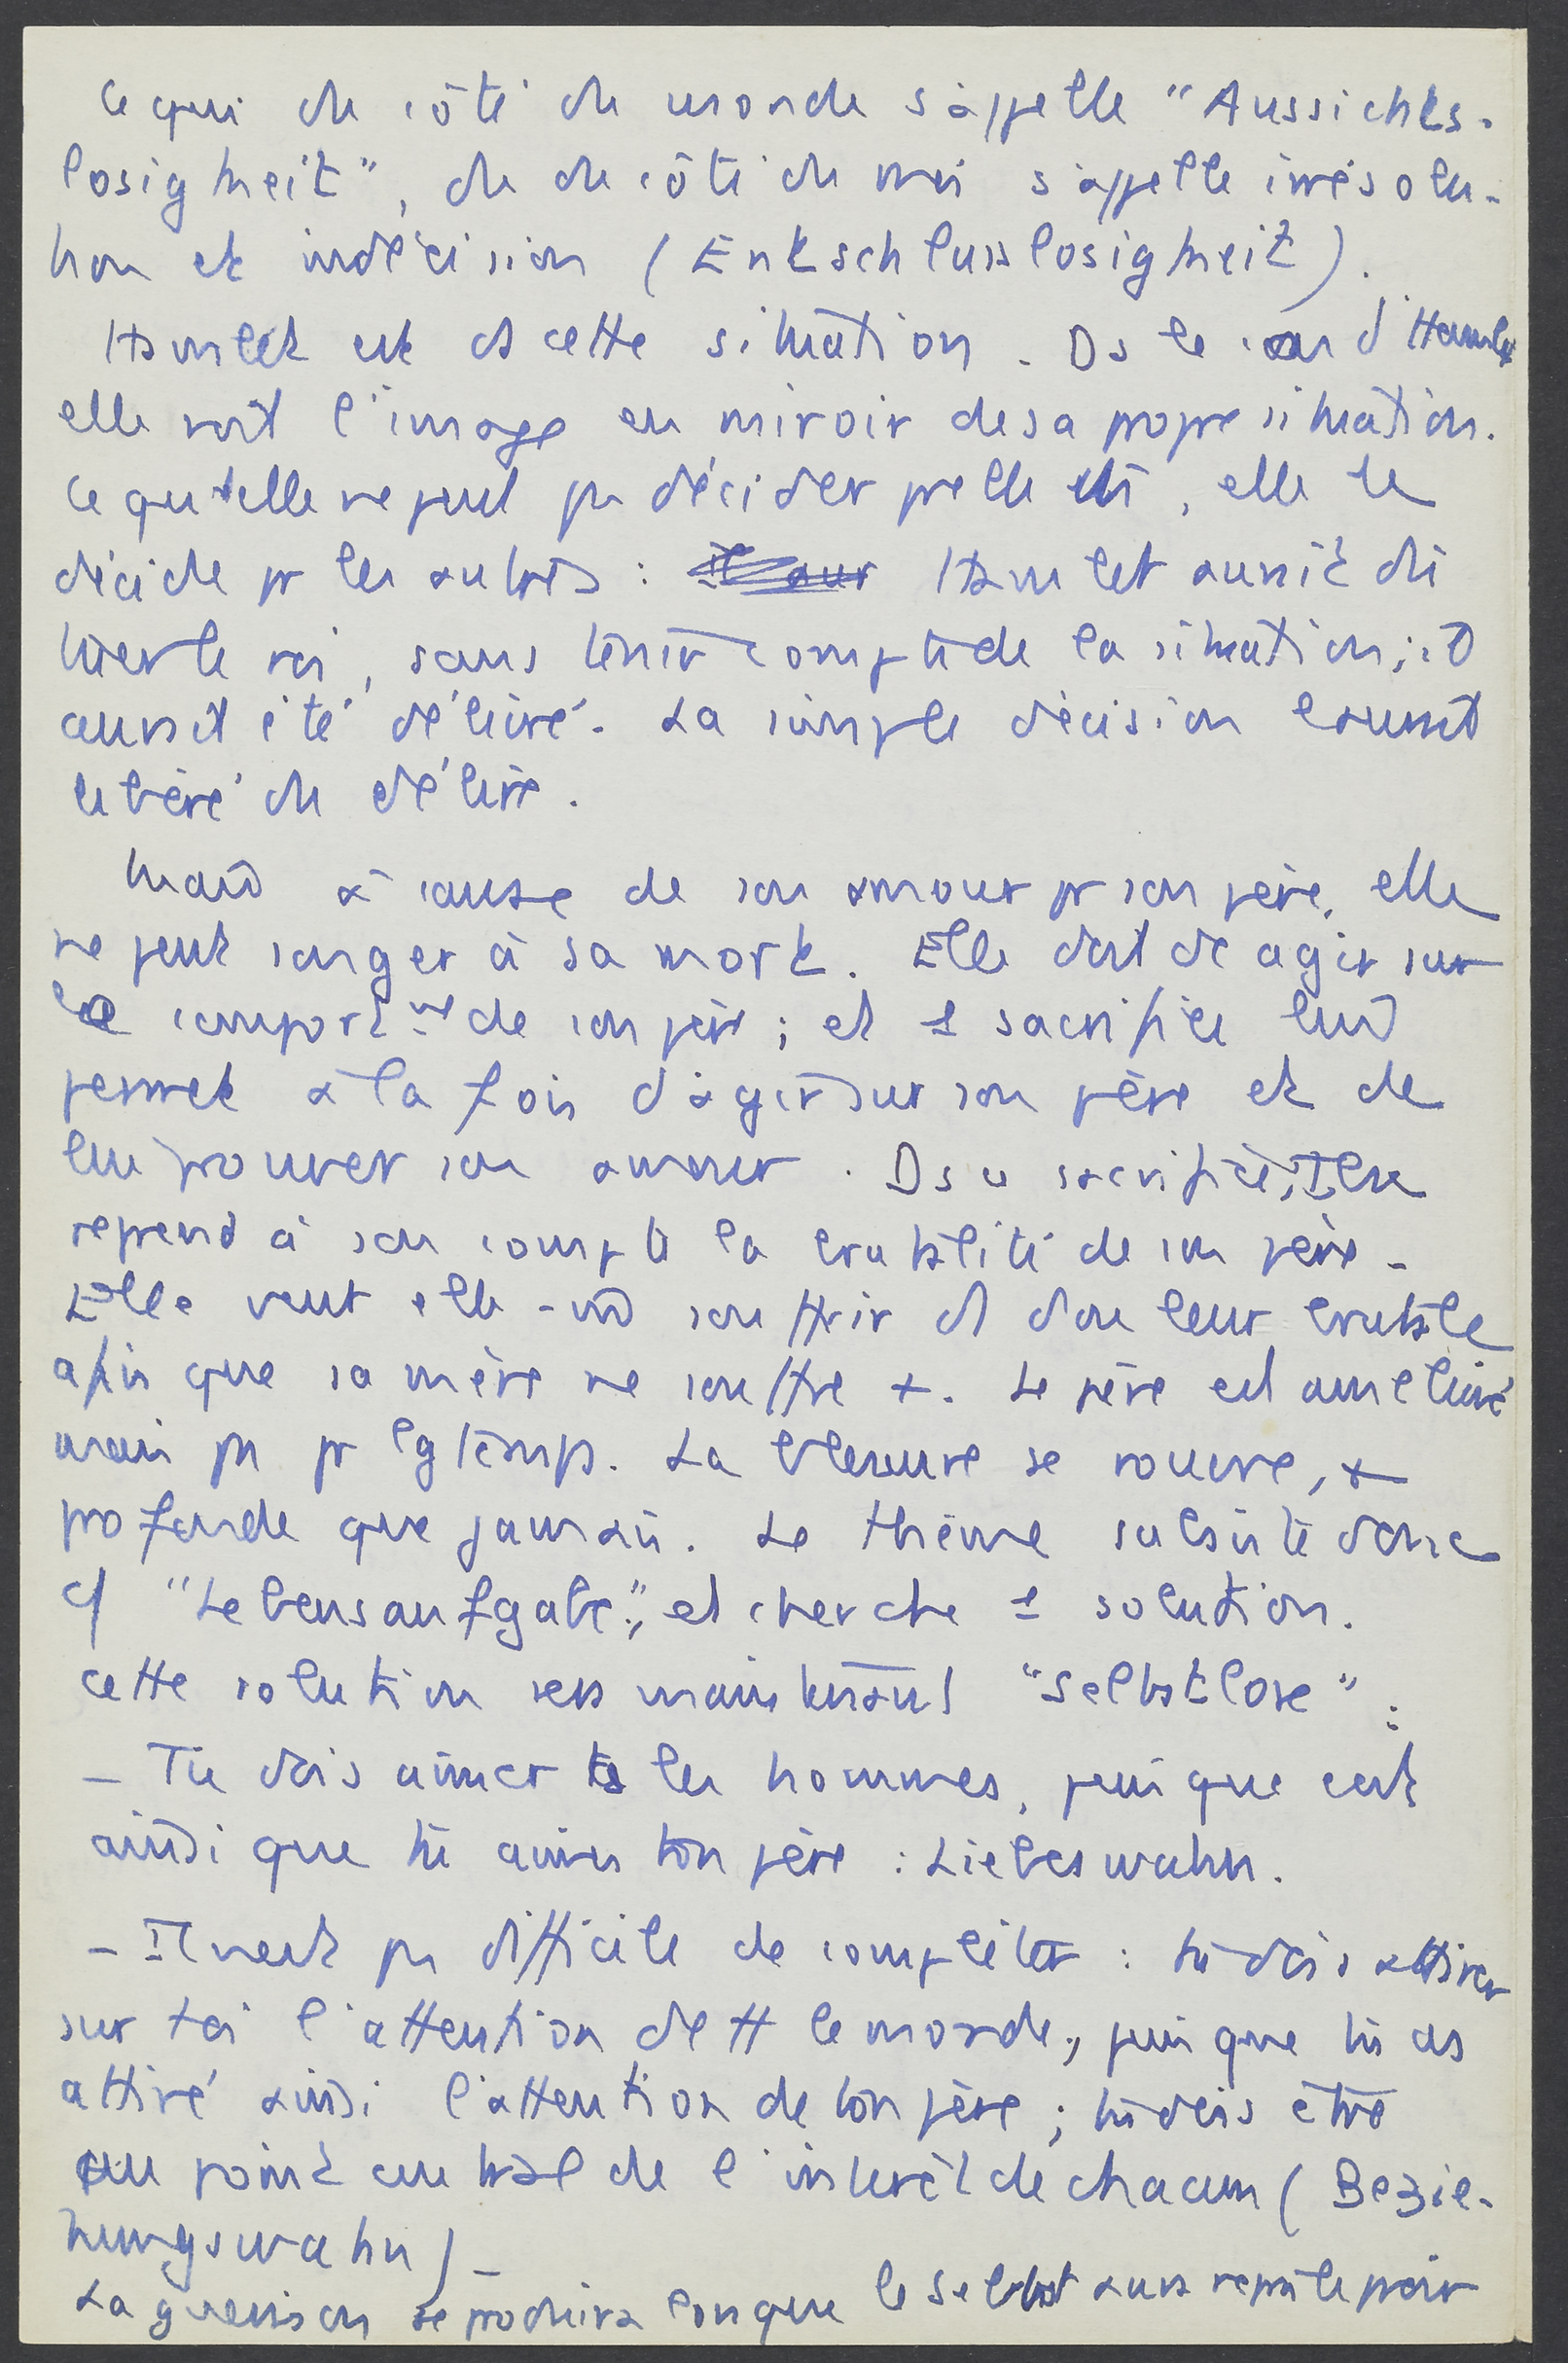 Ce qui du côté du monde s'appelle "Aussichts-
losigkeit", du du côté du moi s'appelle irrésolu-
tion et indécision (Entschlusslosigkeit).
Hamlet est ds cette situation. Ds le cas d'Hamlet
elle voit l'image en miroir de sa propre situation.
Ce qu'elle ne peut pas décider pr elle, elle le
décide pr les autres : Hamlet aurait dû
tuer le roi, sans tenir compte de la situation ; il
aurait été délivré. La simple décision l'aurait
libéré du délire.
Mais à cause de son amour pr son père, elle
ne peut songer à sa mort. Elle doit dc agir sur
le comportmt de son père ; et 1 sacrifice lui
permet à la fois d'agir sur son père et de
lui prouver son amour. Ds ce sacrifice, Ilse
reprend à son compte la brutalité de son père.
Elle veut elle-m̂ souffrir ds douleur brutale
afin que sa mère ne souffre +. Le père est amélioré
mais pas pr lgtemps. La blessure se rouvre, +
profonde que jamais. Le thème subsiste donc
c/ "Lebensaufgabe", et cherche 1 solution.
Cette solution sera maintenant "selbstlose" :
- Tu dois aimer ts les hommes, puisque c'est
ainsi que tu aimes ton père : Liebeswahn.
- Il n'est pas difficile de compléter : tu dois attirer
sur toi l'attention de tt le monde, puisque tu as
attiré ainsi l'attention de ton père ; tu dois être
au point central de l'intérêt de chacun (Bezie-
hungswahn) -
La guérison se produira lorsque le Selbst aura repris le pouvoir